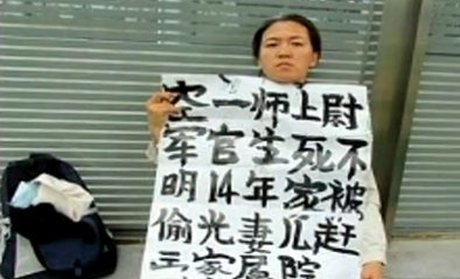 空一师上尉
军官生死不
明14年家被
偷光妻儿赶
出家属院